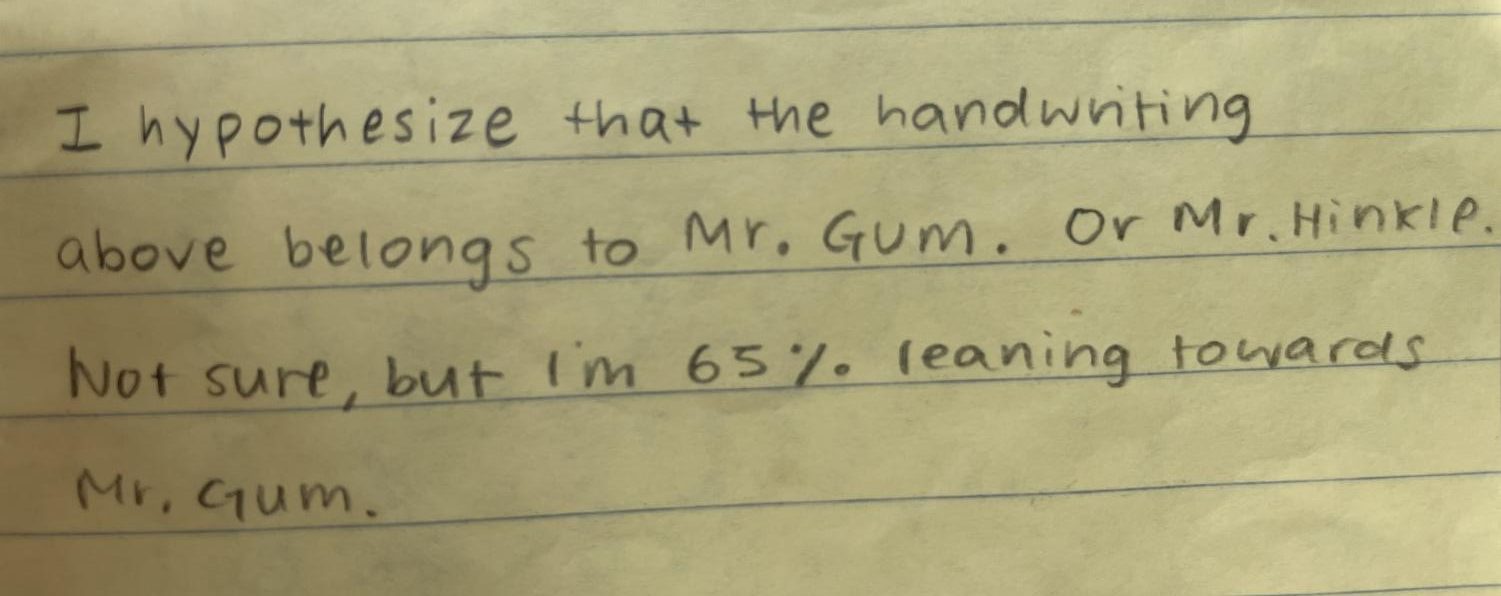 I hypothesize that the handwriting
above belongs to Mr. Gum. Or Mr. Hinkle.
Not sure, but I'm 65%. leaning towards
Mr. Gum.